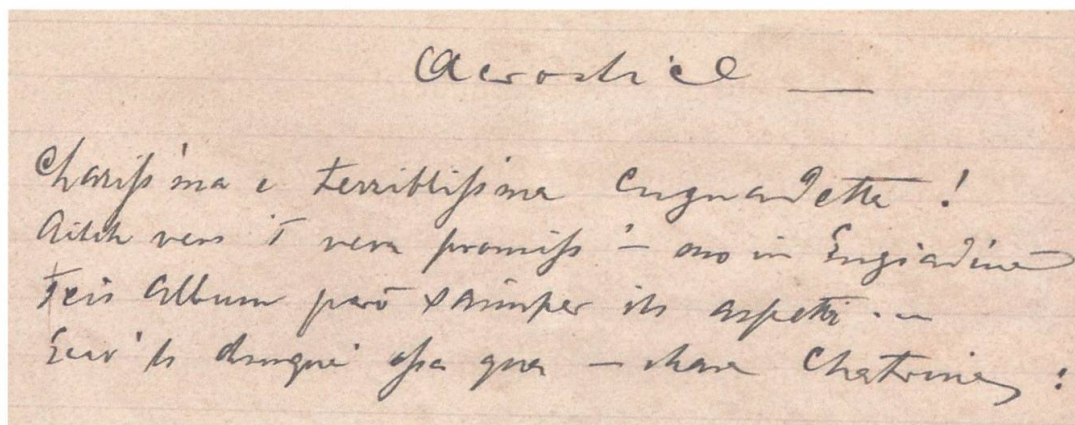 Acrostichl —
Charissima e terriblissima Cugnadetta!
vers t'vera promiss – mo in Engiadina
Teis Album però saimper its aspettà
dunque ossa qua – chara Chatrina: